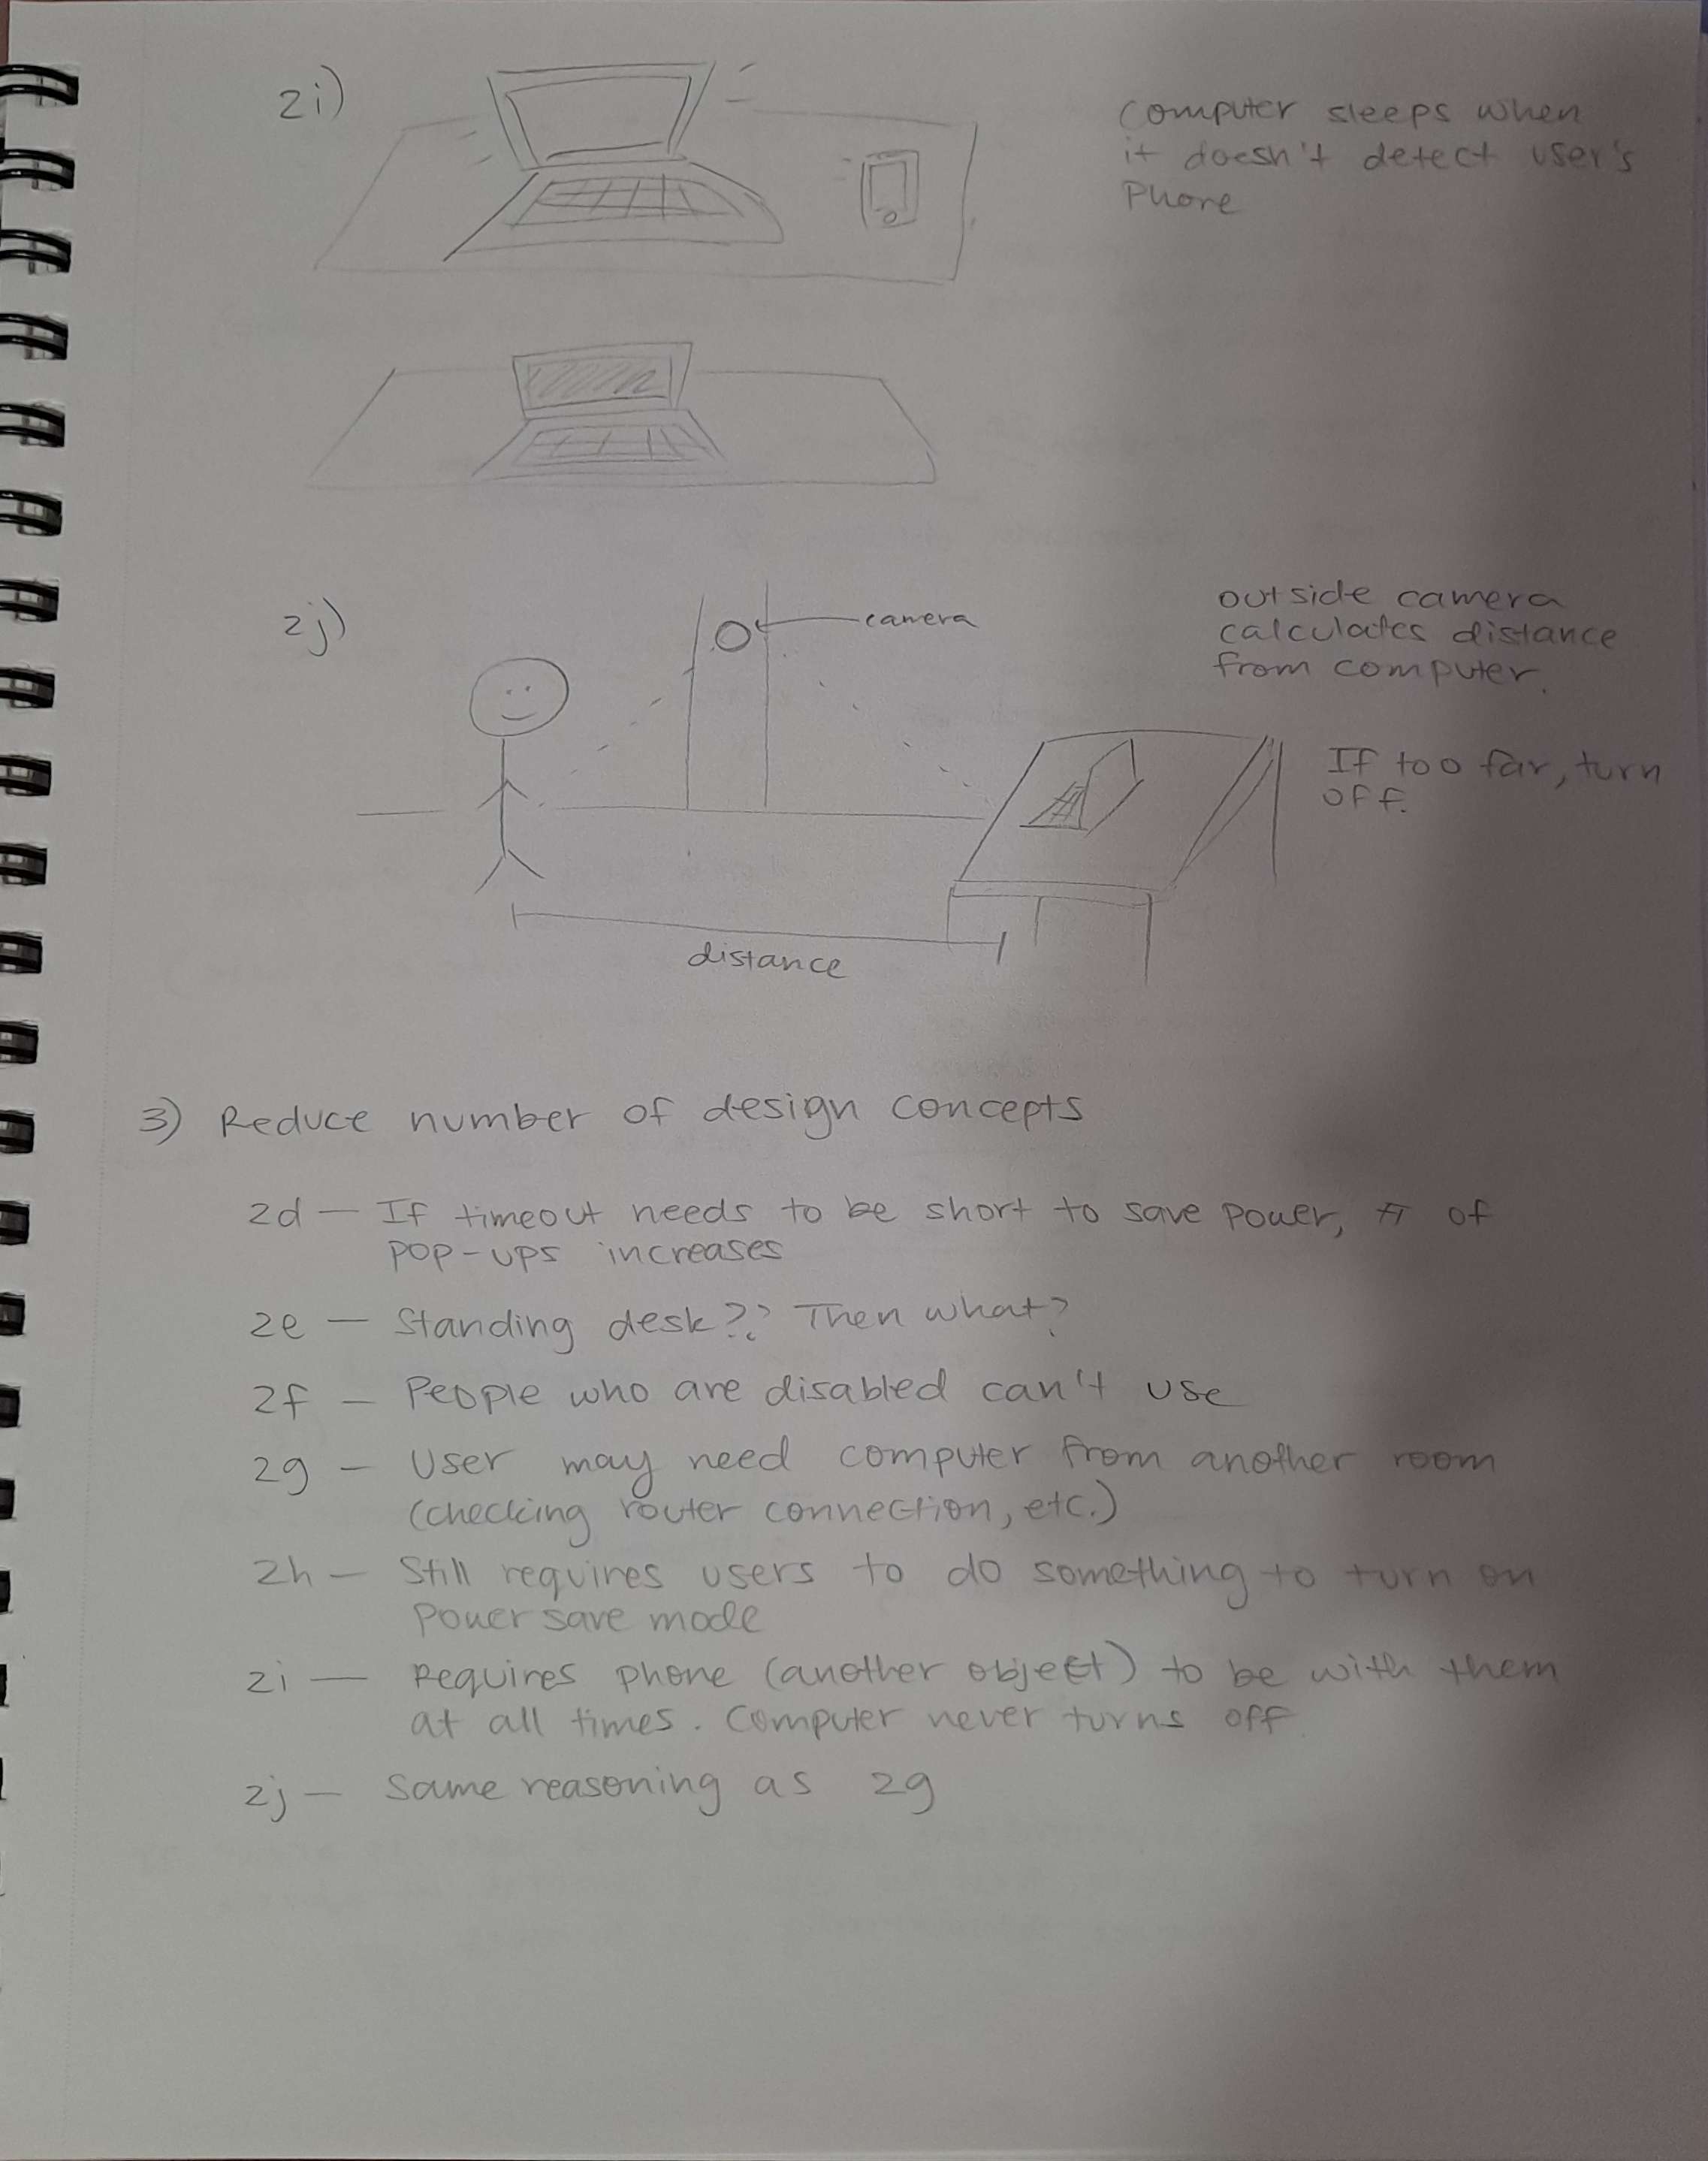 2i)
computer sleeps when
it doesn't detect user's
Phone
2j)
camera
outside camera
calculates distance
from computer.
If too far, turn
off.
distance
3) Reduce number of design concepts
2d — If timeout needs to be short to save power, # of
pop-ups increases
2e — Standing desk?? Then what?
2f — People who are disabled can't use
2g — User may need computer from another room
(checking router connection, etc.)
2h — Still requires users to do something to turn on
power save mode
2i — Requires phone (another object) to be with them
at all times. Computer never turns off.
2j — Same reasoning as 2g